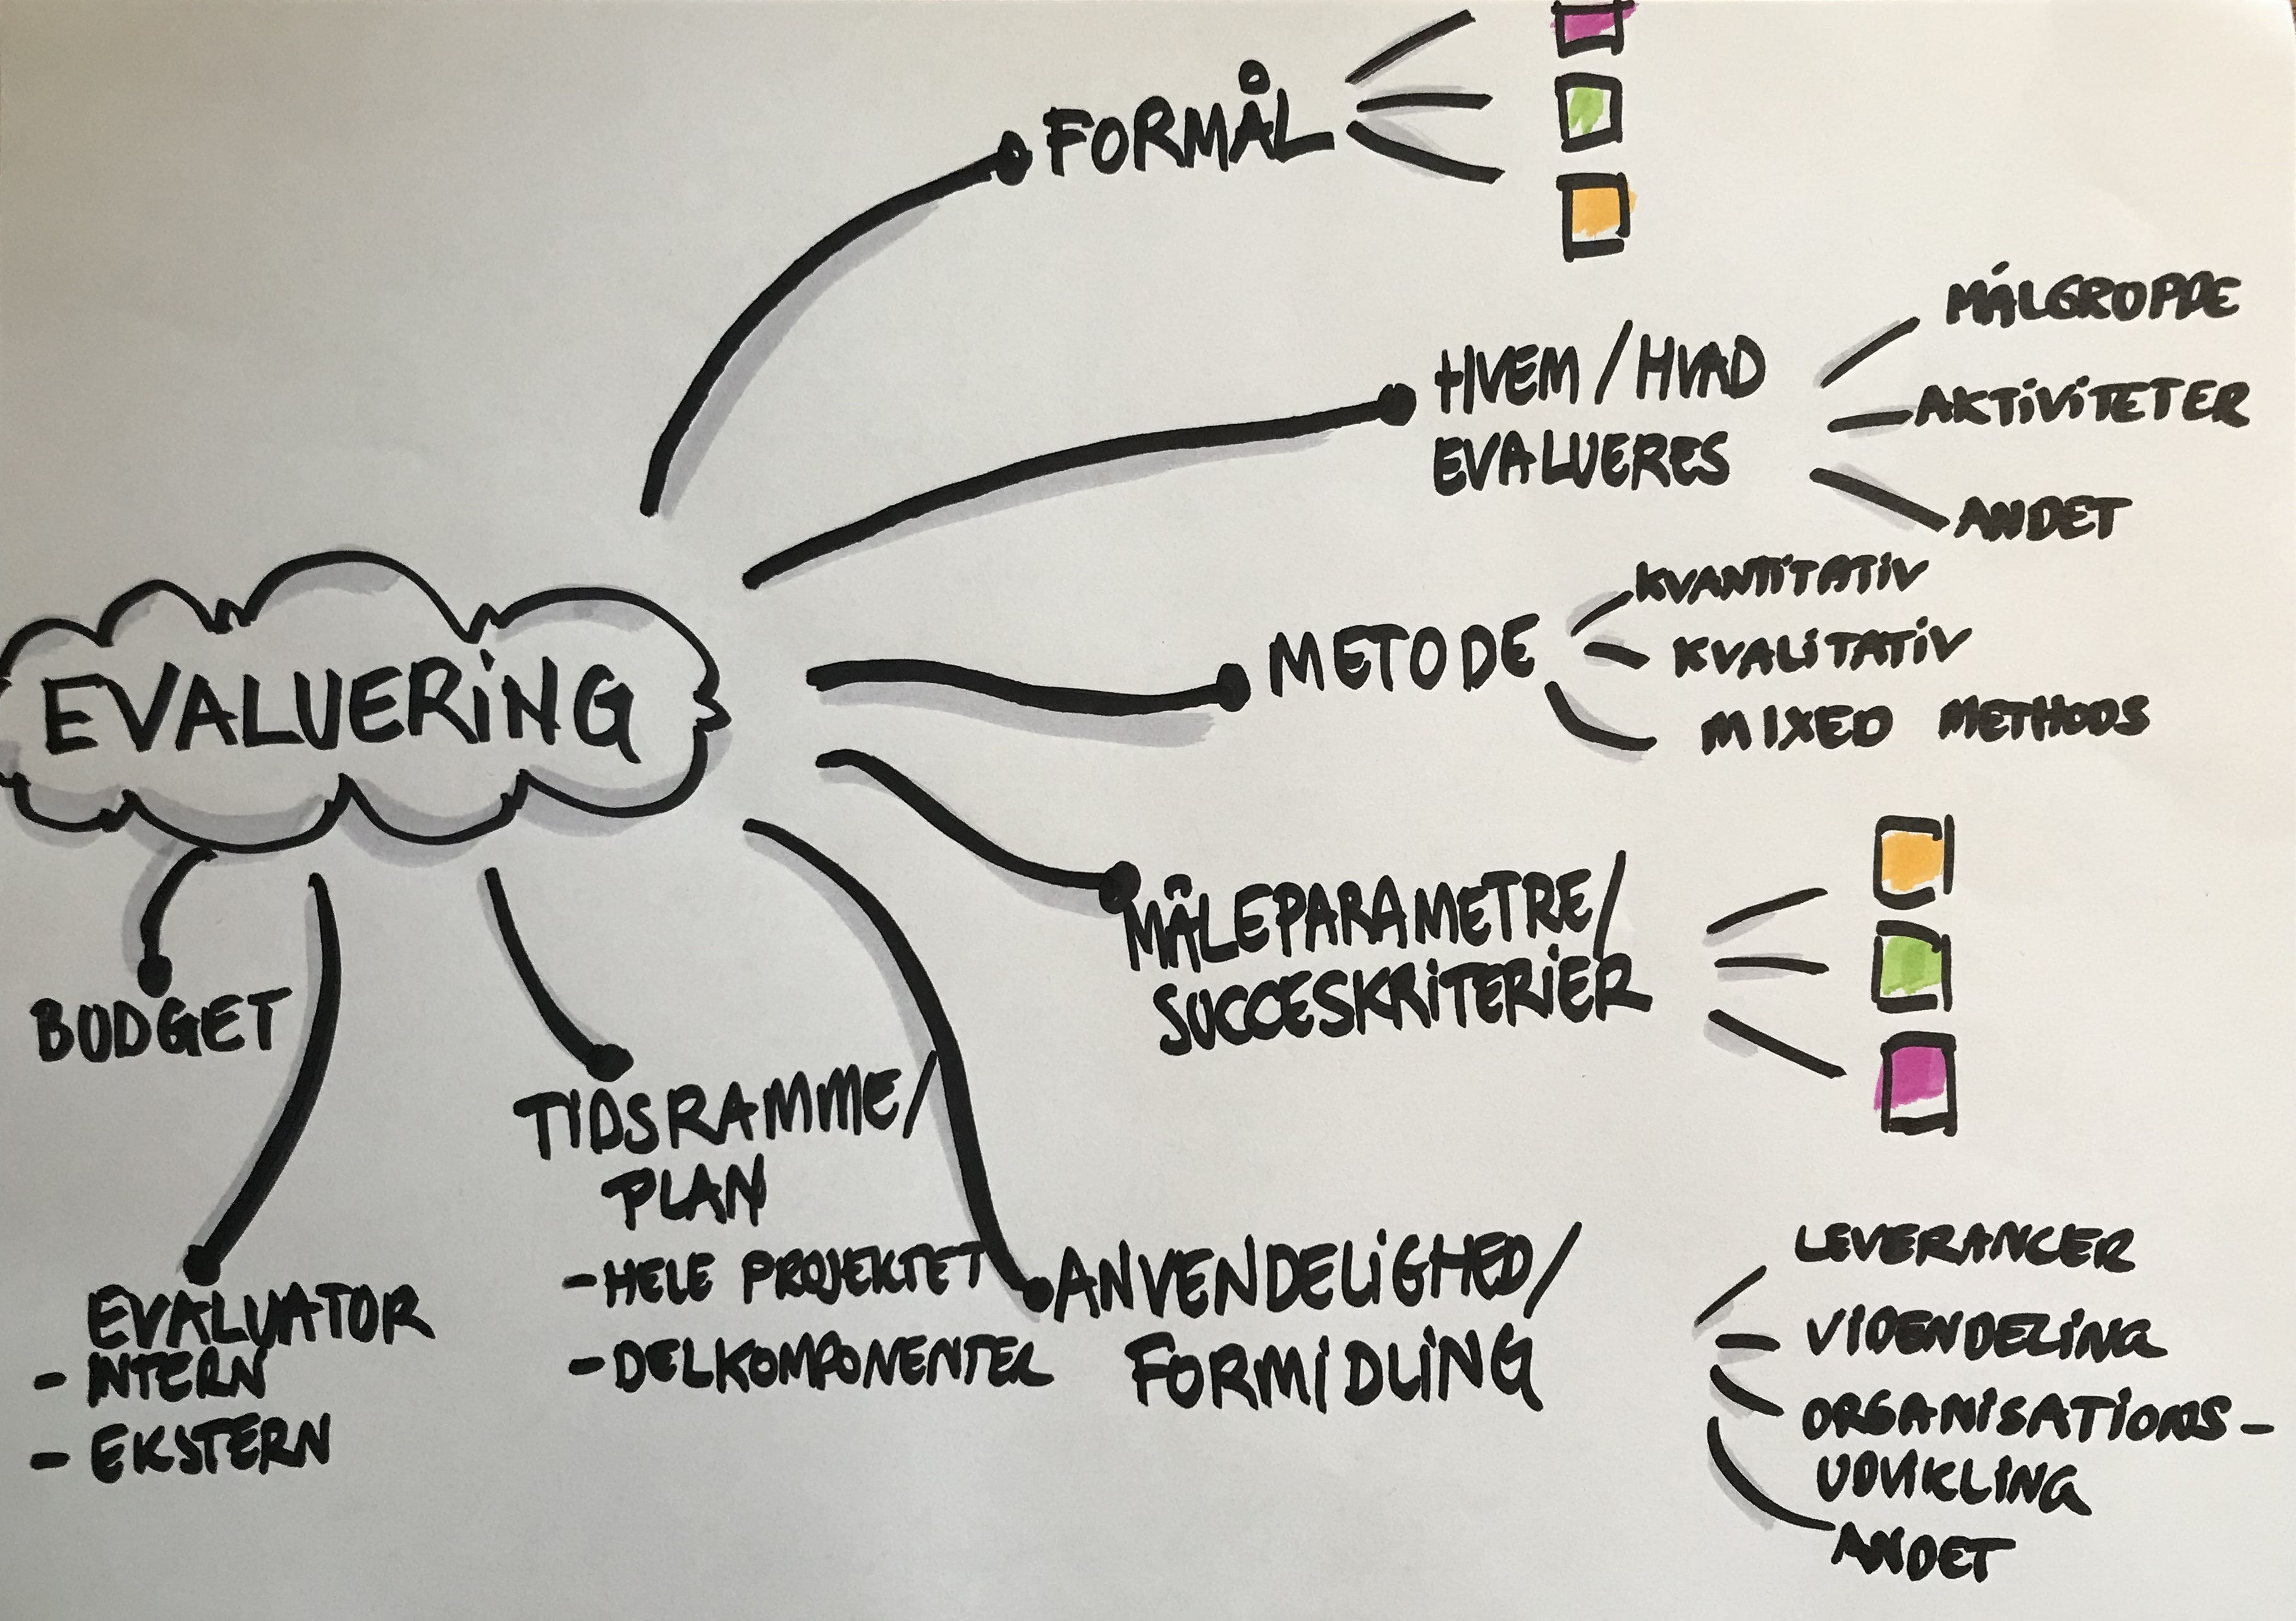 FORMÅL
HVEM / HVAD
EVALUERES
MÅLGRUPPE
AKTIVITETER
ANDET
EVALUERING
METODE
KVANTITATIV
KVALITATIV
MIXED METHODS
MÅLEPARAMETRE/
SUCCESKRITERIER
BUDGET
TIDSRAMME/
PLAN
- HELE PROJEKTET
- DELKOMPONENTER
EVALUATOR
- INTERN
- EKSTERN
ANVENDELIGHED/
FORMIDLING
LEVERANCER
VIDENDELING
ORGANISATIONS-
UDVIKLING
ANDET